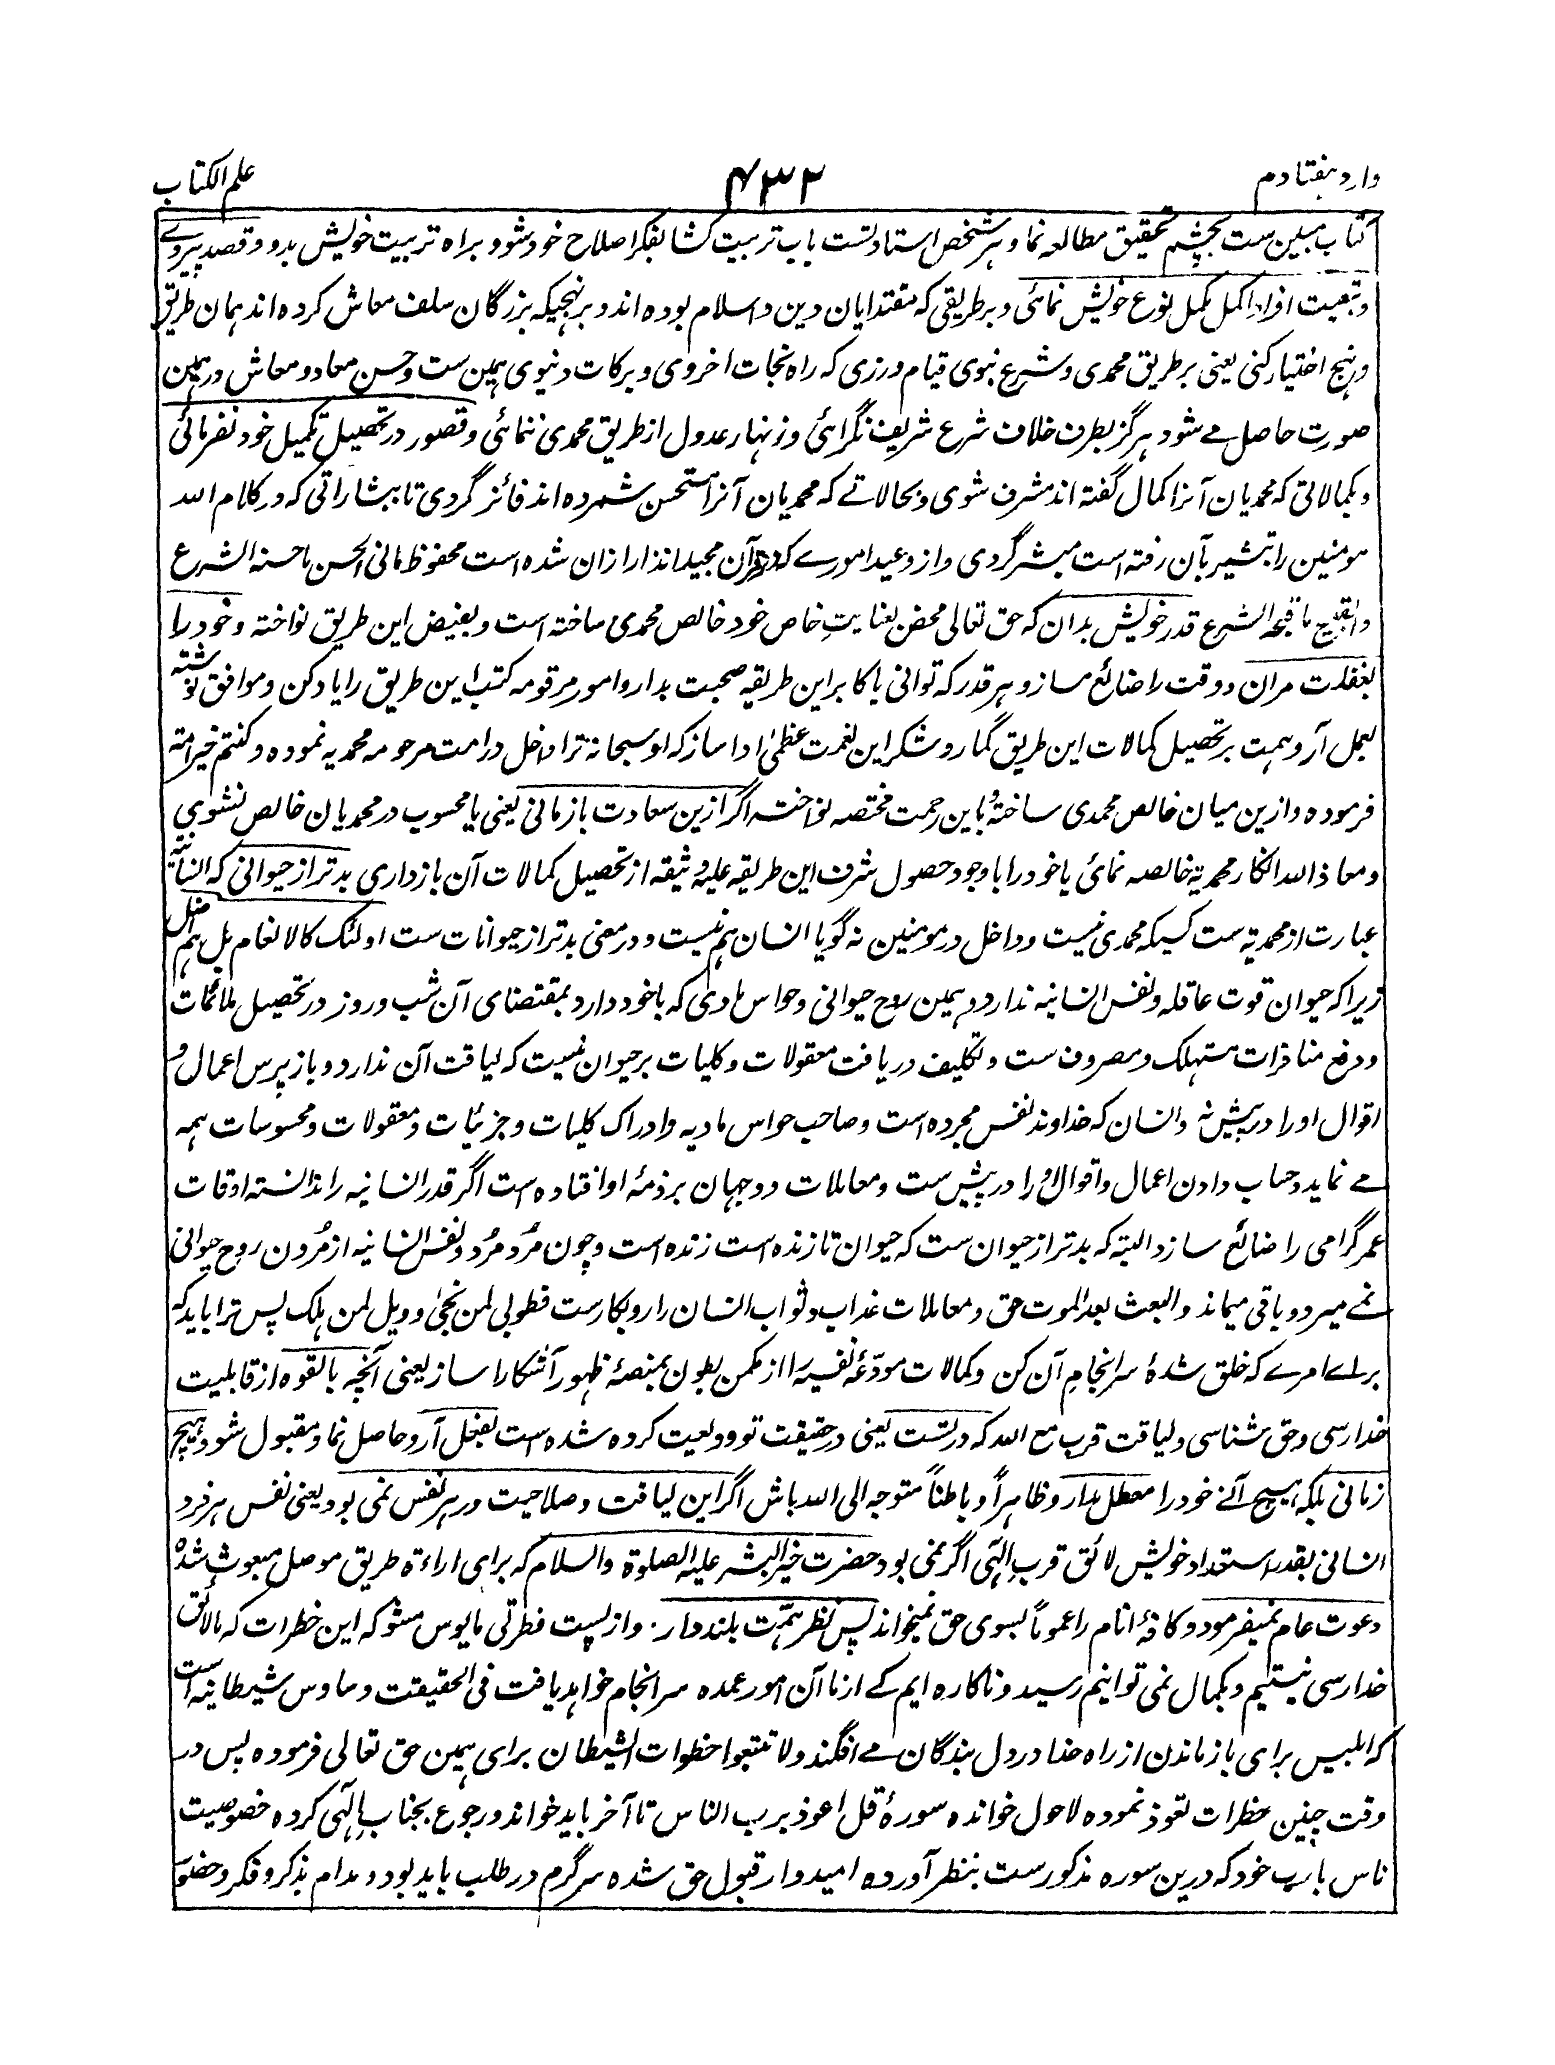 وارد ہفتادم
۴۳۲
علم الکتاب
کتاب مبین ست بچشم تحقیق مطالعہ نما و ہر شخص استاد تست باب تربیت کشا بفکر اصلاح خود شو و براہ تربیت خویش بدو و قصد پیروے
و تبعیت افراد اکمل مکمل نوع خویش نمائی و بر طریقی کہ مقتدایان دین و اسلام بودہ اند و بر نہجیکہ بزرگان سلف معاش کردہ اند ہمان طریق
و نہج اختیار کنی یعنی بر طریق محمدی و شرع نبوی قیام ورزی کہ راہ نجات اخروی و برکات دنیوی ہمین ست و حسن معاد و معاش در ہمین
صورت حاصل مے شود ہرگز بطرف خلاف شرع شریف نگرائی و زنہار عدول از طریق محمدی ننمائی و قصور در تحصیل تکمیل خود نفرمائی
و بکمالاتی کہ محمدیان آنرا کمال گفتہ اند مشرف شوی و بحالاتے کہ محمدیان آنرا مستحسن شمردہ اند فائز گردی تا ببشاراتی کہ در کلام اللہ
مومنین را تبشیر بآن رفتہ است مبشر گردی و از وعید امورے کہ در قرآن مجید انذار ازان شدہ است محفوظ مانی الحسن ما حسنہ الشرع
والقبیح ما قبحہ الشرع قدر خویش بدان کہ حق تعالی محض بعنایتِ خاص خود خالص محمدی ساختہ است و بفیض این طریق نواختہ و خود را
بغفلت مران و وقت را ضائع مساز و ہر قدر کہ توانی با کابر این طریقہ صحبت بدار و امور مرقومہ کتب این طریق را یاد کن و موافق نوشتہ
بعمل آر و ہمت بر تحصیل کمالات این طریق گمار و شکر این نعمت عظمیٰ ادا ساز کہ او سبحانہ ترا داخل در امت مرحومہ محمدیہ نمودہ و کنتم خیر امتہ
فرمودہ و ازین میان خالص محمدی ساختہٗ باین رحمت مختصہ نواختہ اگر ازین سعادت باز مانی یعنی یا محسوب در محمدیان خالص نشوی
و معاذ اللہ انکار محمدیہ خالصہ نمائی یا خود را با وجود حصول شرف این طریقہ علیہ وثیقہ از تحصیل کمالات آن بازداری بدتر از حیوانی کہ انسانیۃ
عبارت از محمدیۃ ست کسیکہ محمدی نیست و داخل در مومنین نہ گویا انسان ہم نیست و در معنی بدتر از حیوانات ست اولئک کالانعام بل ہم اضل
زیرا کہ حیوان قوت عاقلہ و نفس انسانیہ ندارد و ہمین روح حیوانی و حواس مادی کہ با خود دارد بمقتضای آن شب و روز در تحصیل ملائمات
و دفع منافرات مستہلک و مصروف ست و تکلیف دریافت معقولات و کلیات بر حیوان نیست کہ لیاقت آن ندارد و باز پرس اعمال و
اقوال او را در پیش نہ و انسان کہ خداوند نفس مجردہ است و صاحب حواس مادیہ و ادراک کلیات و جزئیات و معقولات و محسوسات ہمہ
مے نماید و حساب دادن اعمال و اقوال او را در پیش ست و معاملات دو جہان بر ذمۂ او افتادہ است اگر قدر انسانیہ را ندانستہ اوقات
عمر گرامی را ضائع سازد البتہ کہ بدتر از حیوان ست کہ حیوان تا زندہ است زندہ است و چون مُرد مُرد و نفس انسانیہ از مُردن روح حیوانی
نمے میرد و باقی میماند و البعث بعد الموت حق و معاملات عذاب و ثواب انسان را روبکارست فطوبی لمن نجیٰ و ویل لمن ہلک پس ترا باید کہ
براے امرے کہ خلق شدۂ سرانجامِ آن کن و کمالات مودّعۂ نفسیہ را از مکمن بطون بمنصۂ ظہور آشکارا ساز یعنی آنچہ بالقوہ از قابلیت
خدارسی و حق شناسی و لیاقت قرب مع اللہ کہ در تست یعنی در حقیقت تو ودیعت کردہ شدہ است بفعل آر و حاصل نما و مقبول شو و ہیچ
زمانی بلکہ ہیچ آنے خود را معطل مدار و ظاہراً و باطناً متوجہ الی اللہ باش اگر این لیاقت و صلاحیت در ہر نفس نمی بود یعنی نفس ہر فرد
انسانی بقدر استعداد خویش لائق قرب الٓہی اگر نمی بود حضرت خیر البشر علیہ الصلوۃ والسلام کہ برای اراءۃ طریق موصل مبعوث شدہ
دعوت عام نمیفرمود و کافۂ انام را عموماً بسوی حق نمیخواند پس نظر ہمّت بلند دار۔ و از پست فطرتی مایوس مشو کہ این خطرات کہ ما لائق
خدارسی نیستیم و بکمال نمی توانیم رسید و ناکارہ ایم کے از ما آن امور عمدہ سرانجام خواہد یافت فی الحقیقت وساوس شیطانیہ است
کہ ابلیس برای باز ماندن از راہ خدا در دل بندگان مے افگند ولا تتبعوا خطوات الشیطان برای ہمین حق تعالی فرمودہ پس در
وقت چنین خطرات تعوذ نمودہ لاحول خواندہ سورۂ قل اعوذ برب الناس تا آخر باید خواند و رجوع بجناب الٓہی کردہ خصوصیت
ناس با رب خود کہ درین سورہ مذکورست بنظر آوردہ امیدوار قبول حق شدہ سرگرم در طلب باید بود و مدام بذکر و فکر و حضور